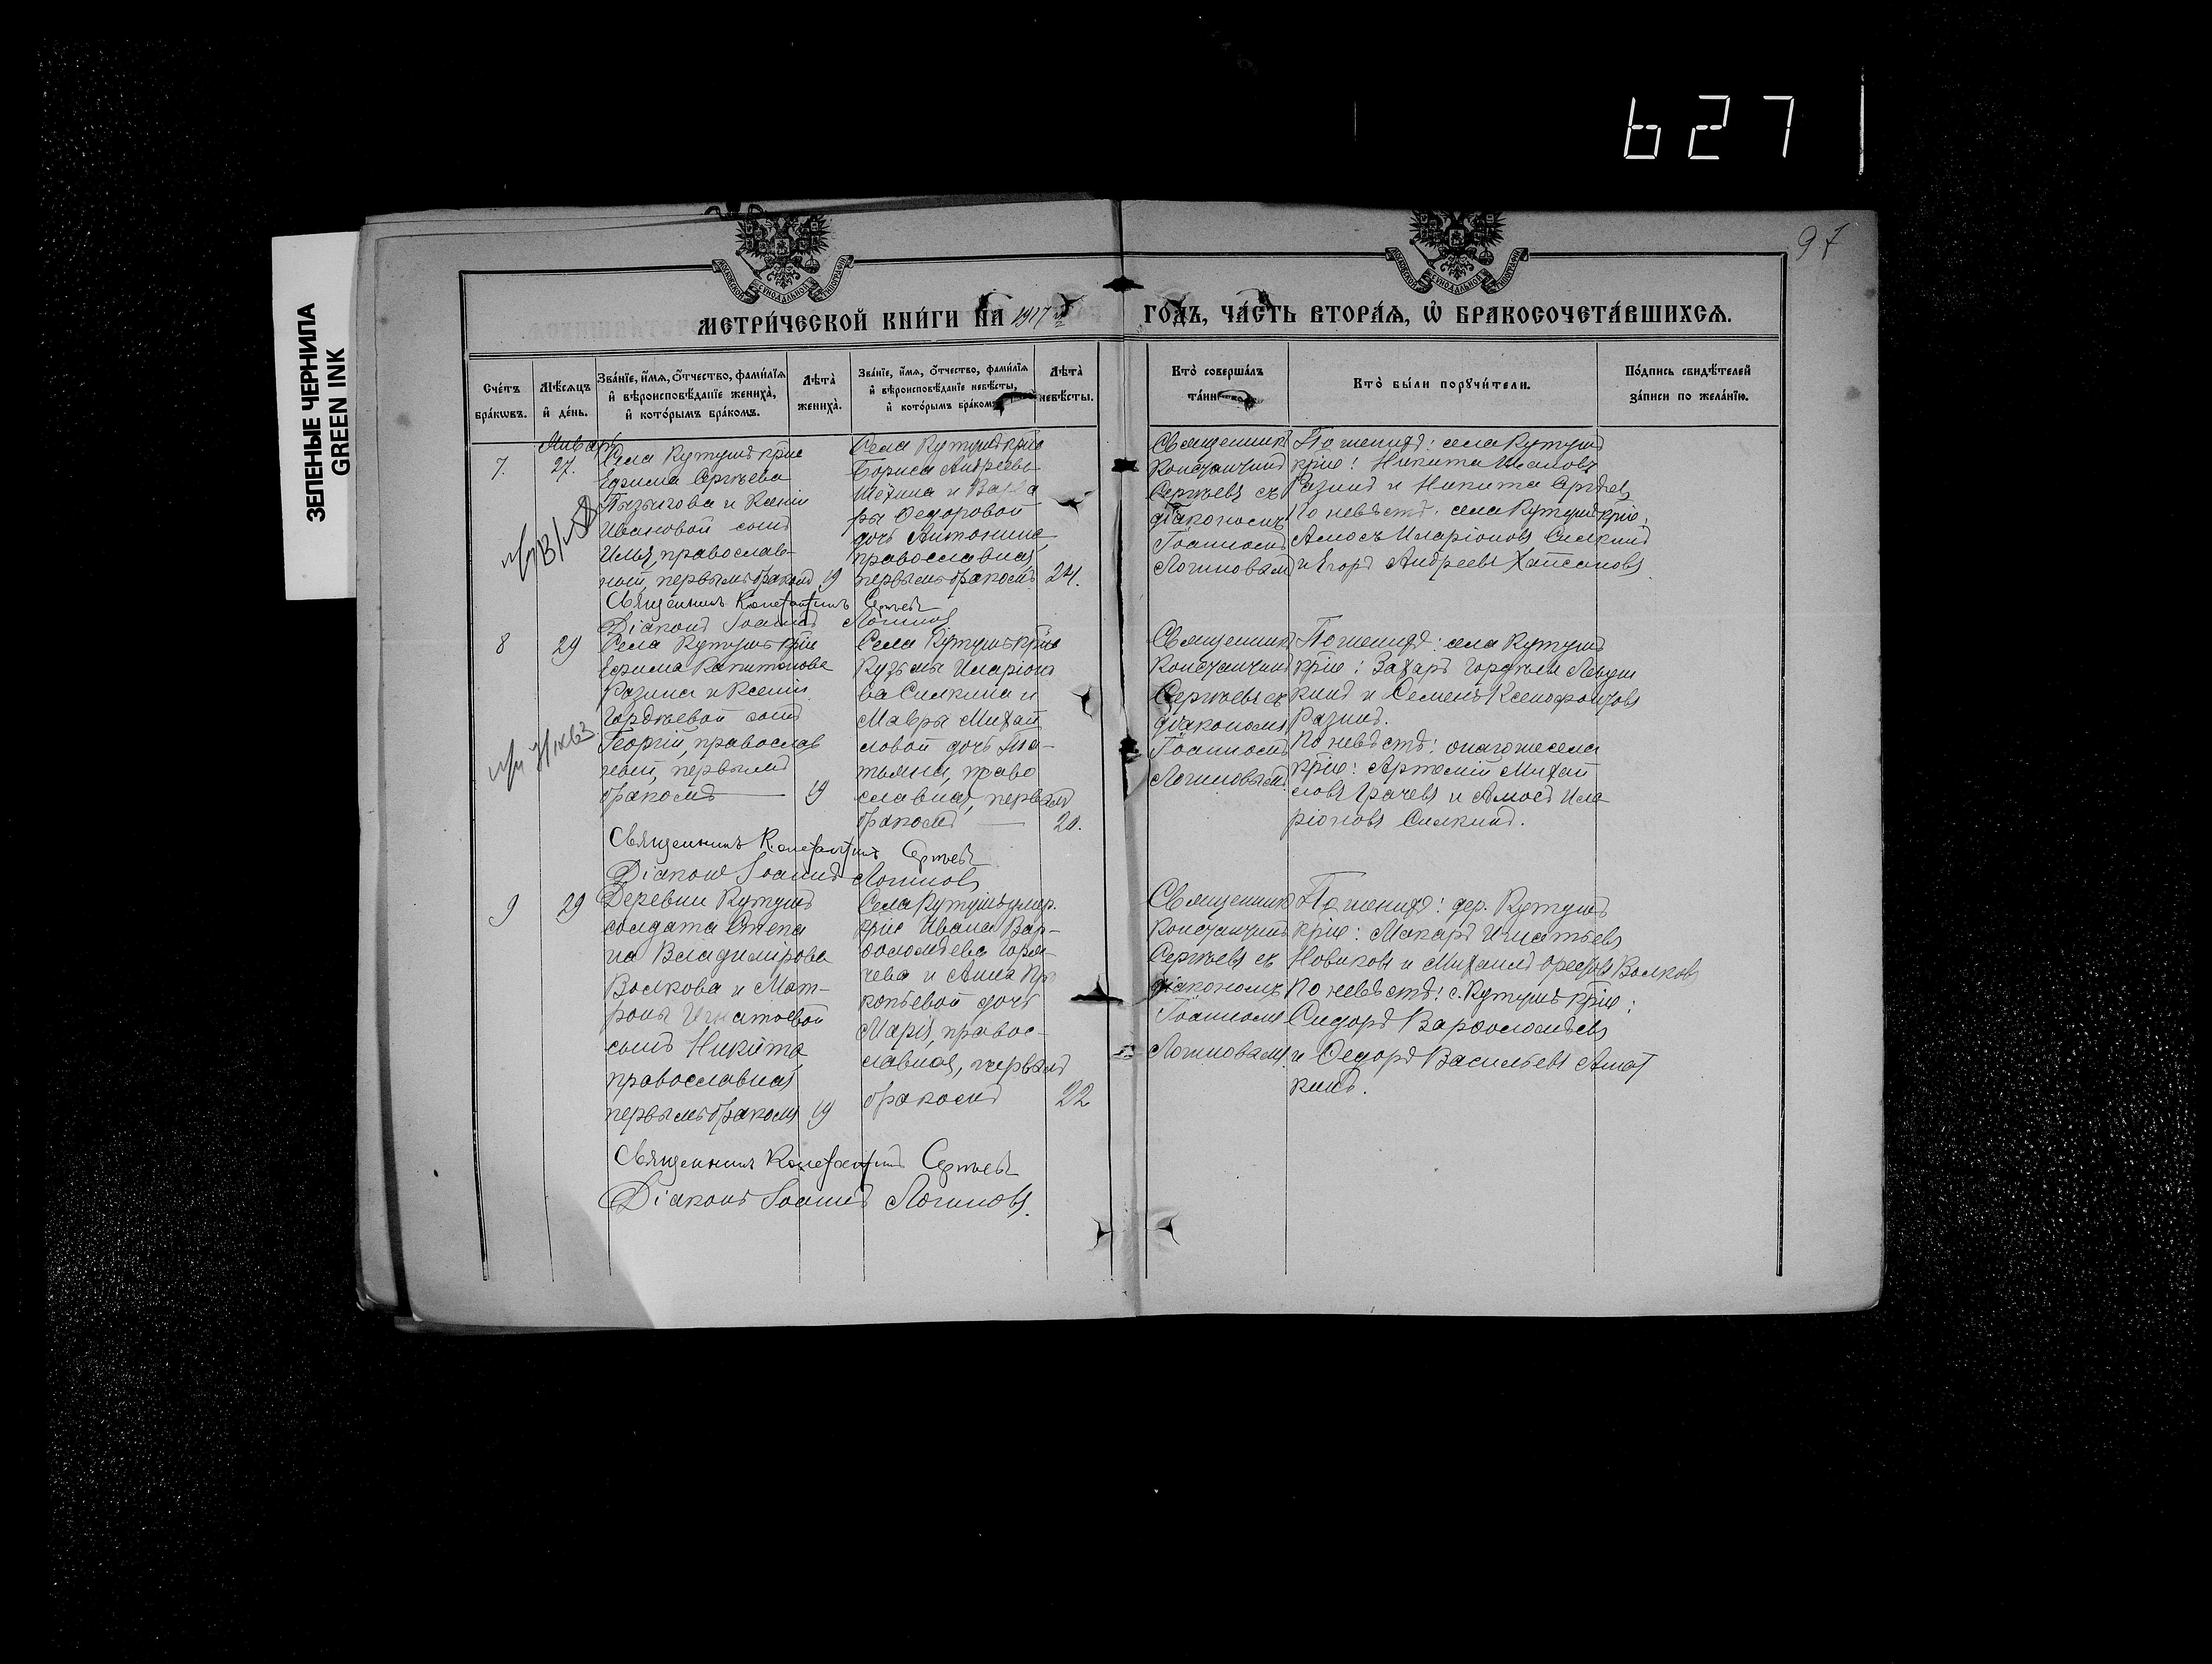 6271
97
ЗЕЛЕНЫЕ ЧЕРНИЛА
GREEN INK
МОСКОВСКОЙ СУНОДАЛЬНОЙ ТИПОГРАФІИ
МОСКОВСКОЙ СУНОДАЛЬНОЙ ТИПОГРАФІИ
МЕТРИ́ЧЕСКОЙ КНИ́ГИ НА 1917 й
ГО́ДЪ, ЧА́СТЬ ВТОРА́Я, Ѡ БРАКОСОЧЕТА́ВШИХСЯ.
Сче́тъ бра́кѡвъ.
Мѣ́сяцъ и де́нь.
Зва́нїе, и́мя, о́тчество, фами́лїя и вѣроисповѣ́данїе жениха̀, и кото́рымъ бра́комъ.
Лѣта̀ жениха̀.
Зва́нїе, и́мя, о́тчество, фами́лїя и вѣроисповѣ́данїе невѣ́сты, и кото́рымъ бракомъ
Лѣта̀ невѣ́сты.
Кто̀ соверша́лъ та́ин
Кто̀ бы́ли порꙋчи́тели.
По́дпись свидѣ́телей за́писи по жела́нїю.
7.
Январь
27.
Села Кутушъ крес
Ефима Сергѣева
и Ксеніи
Ивановой сынъ
Илья, православ-
ный, первымъ бракомъ
19
Села Кутушъ крес
Бориса Андреевы
Шехина и Варва
ры Ѳедоровой
дочь Антонина
православная,
первымъ бракомъ
24.
Священникъ
Константинъ
Сергѣевъ съ
діакономъ
Іоанномъ
Логиновым
По женихѣ: села Кутушъ
крес: Никита Ивановъ
Разинъ и Никита Сергѣевъ
По невѣстѣ: села Кутушъ крес:
Амосъ Иларіоновъ Силкинъ
и Егоръ Андреевъ
Священникъ Константинъ Сергѣевъ
Діаконъ Іоаннъ Логиновъ
8
29
Села Кутушъ крес
Ефима Капитонова
Разина и Ксеніи
Гордѣевой сынъ
Георгій, православ
ный, первымъ
бракомъ
19
Села Кутушъ крес
Кузьмы Иларіоно
ва Силкина и
Мавры Михай
ловой дочь Та-
тьяна, право
славная, первымъ
бракомъ
20.
Священникъ
Константинъ
Сергѣевъ съ
діакономъ
Іоанномъ
Логиновымъ
По женихѣ: села Кутушъ
крес: Захаръ Гордѣевъ
кинъ и Семенъ Ксенофонтовъ
Разинъ.
По невѣстѣ: онагоже села
крес: Артемій Михай
ловъ Грачевъ и Амосъ Ила
ріоновъ Силкинъ.
Священникъ Константинъ Сергѣевъ
Діаконъ Іоаннъ Логиновъ
9
29
Деревни Кутушъ
солдата Степа
на Владимірова
Волкова и Мат-
роны Игнатьевой
сынъ Никита,
православный
первымъ бракомъ
19
Села Кутушъ умер.
крес Ивана Вар-
ѳоломѣева Горя-
чева и Анна Про
копьевой дочь
Марія, правос-
лавная, первымъ
бракомъ
22
Священникъ
Константинъ
Сергѣевъ съ
діакономъ
Іоанномъ
Логиновымъ
По женихѣ: дер. Кутушъ
крес: Макаръ Игнатьевъ
Новиковъ и Михаилъ Волковъ
По невѣстѣ: с. Кутушъ крес:
Сидоръ Варѳоломѣевъ
и Ѳедоръ Васильевъ
кинъ.
Священникъ Константинъ Сергѣевъ
Діаконъ Іоаннъ Логиновъ.